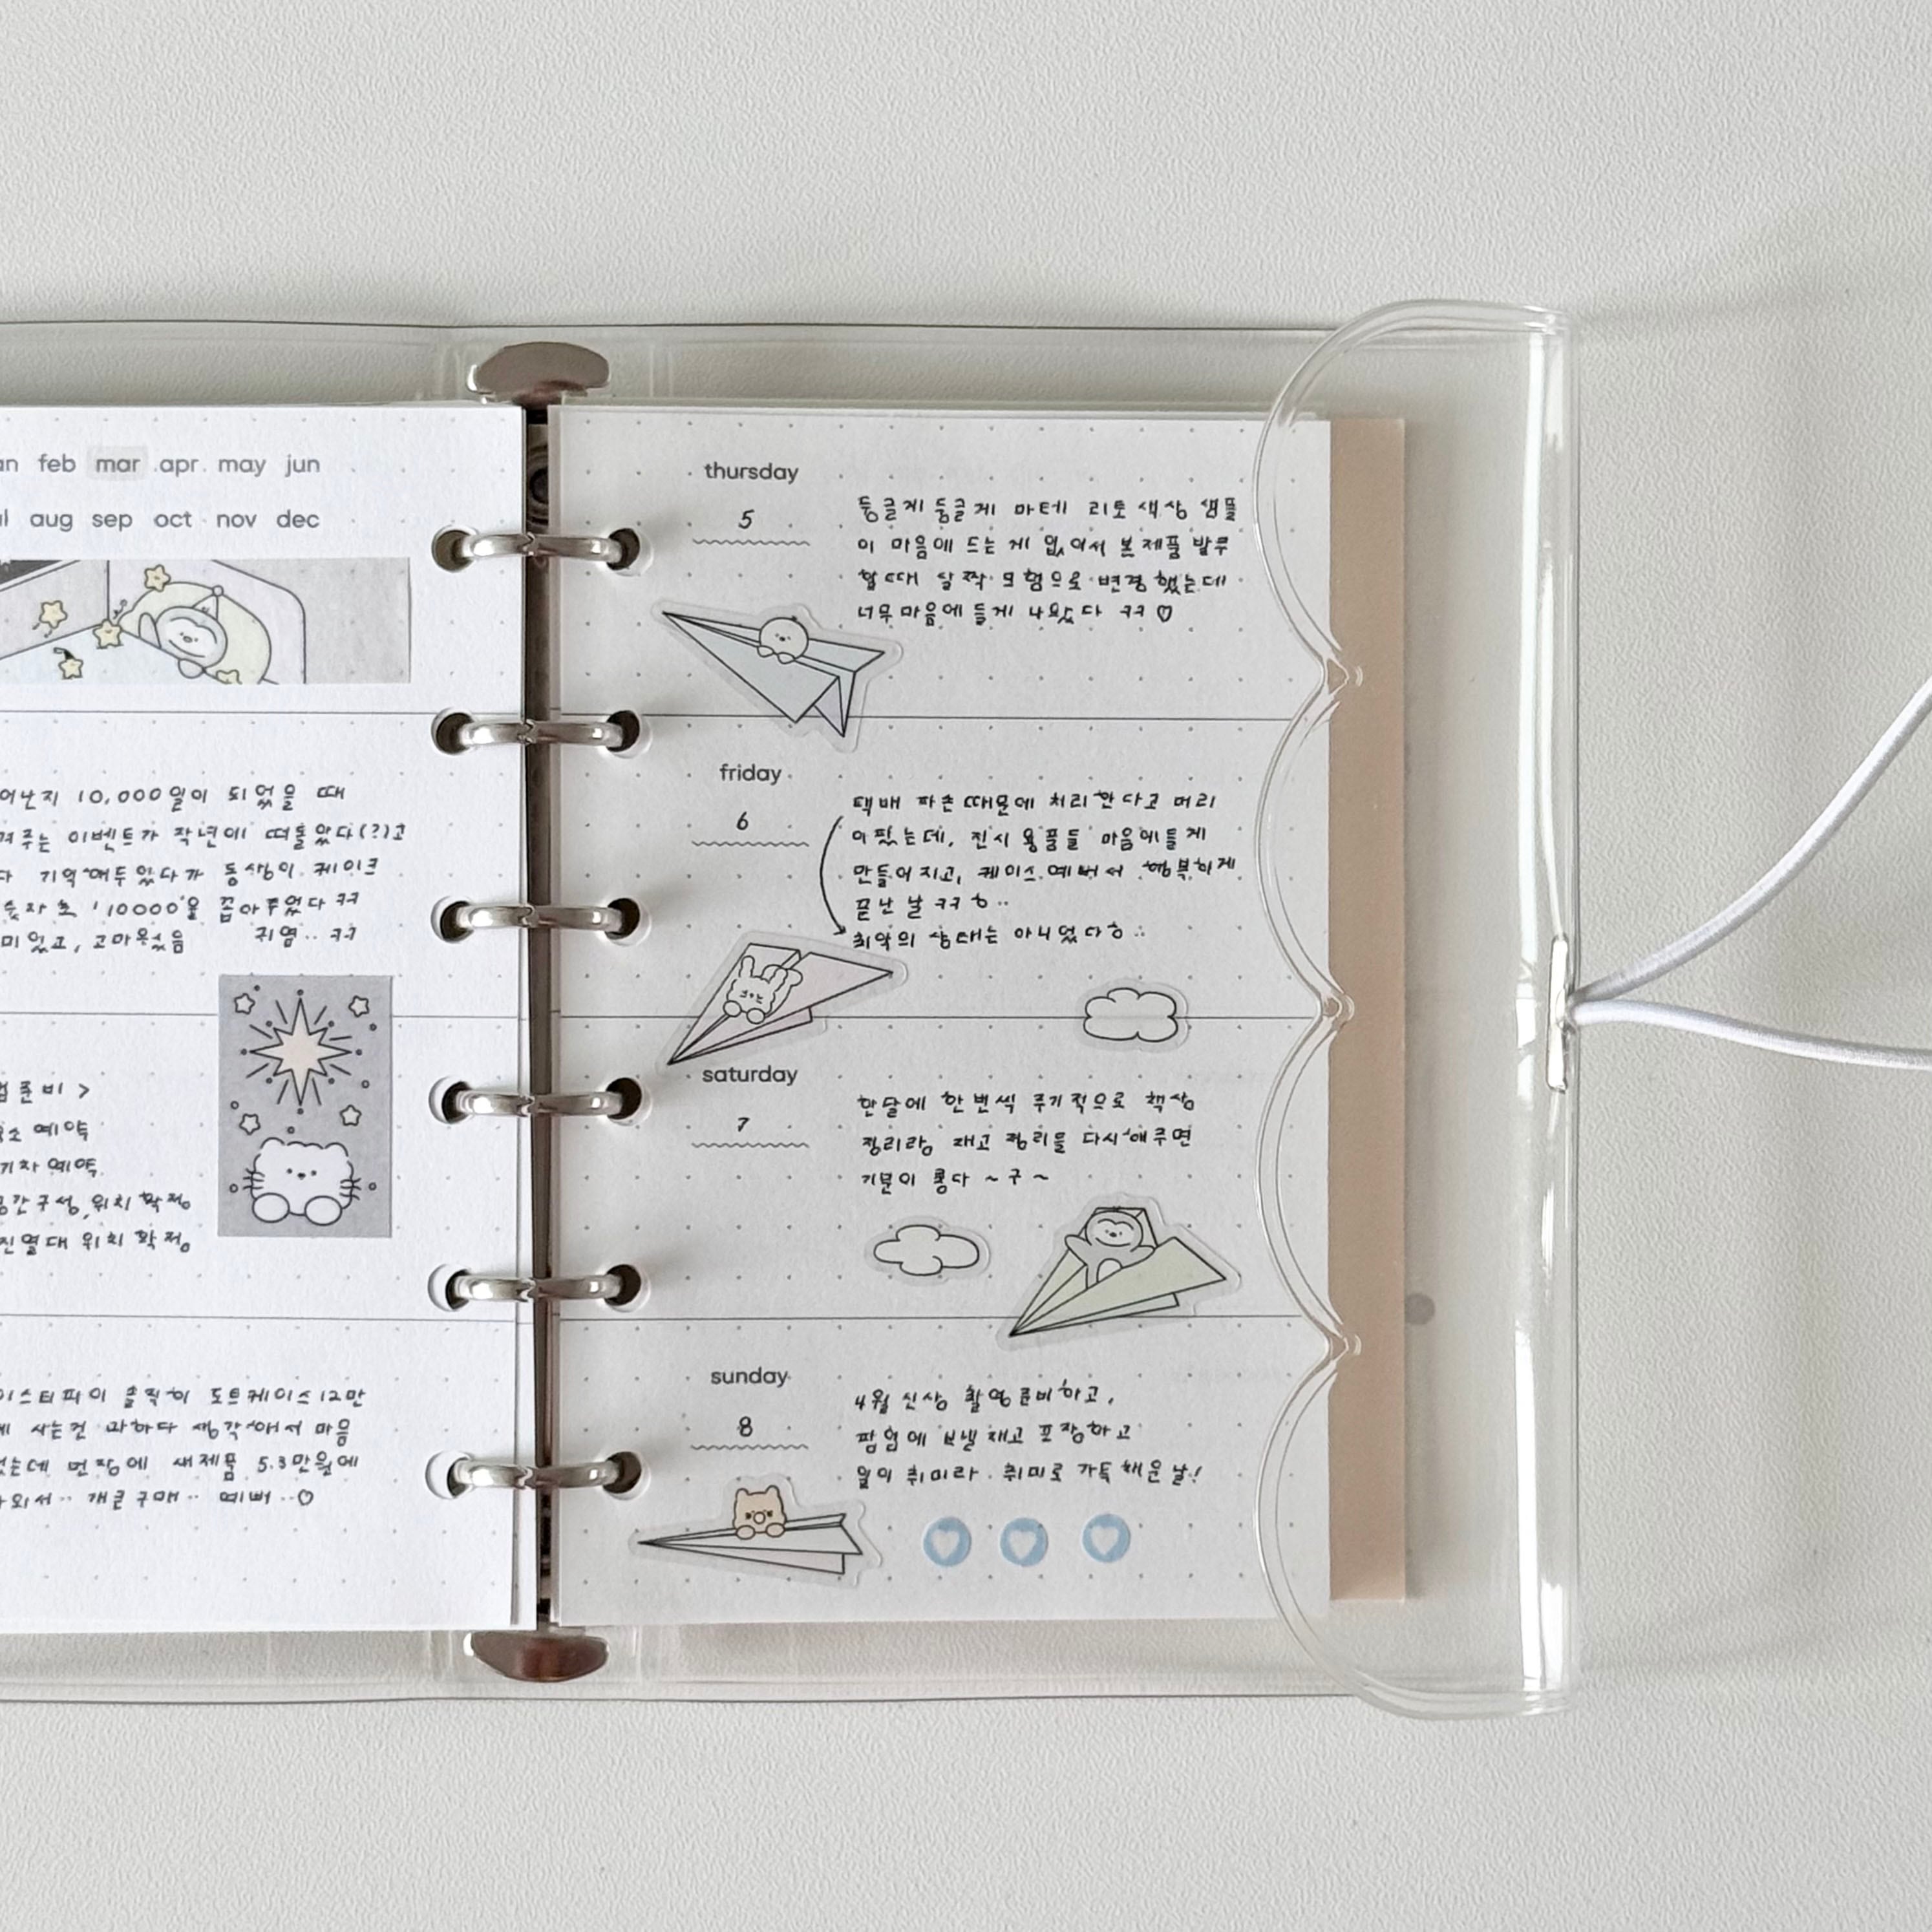 feb mar apr may jun
aug sep oct nov dec
어난지 10,000일이 되었을 때
겨주는 이벤트가 작년에 떠돌았다(?)고
다 기억해두었다가 동생이 케이크
숫자 초 '10000'을 꼽아주었다 ㅋㅋ
미있고, 고마웠음 귀염.. ㅋㅋ
준비 >
소 예약
기차 예약
공간구성, 위치 확정
진열대 위치 확정
이스티피이 솔직히 도트케이스 12만
에 사는건 과하다 생각해서 마음
는데 번장에 새제품 5.3만원에
나와서.. 개큰구매.. 예뻐..♡
thursday
5
둥글게둥글게 마테 리토 색상 샘플
이 마음에 드는 게 없어서 본제품 발주
할때 살짝 모험으로 변경했는데
너무 마음에 들게 나왔다 ㅋㅋ ♡
friday
6
택배 파손 때문에 처리한다고 머리
아팠는데, 전시 용품들 마음에들게
만들어지고, 케이스 예뻐서 행복하게
끝난 날 ㅋㅋ ㅎ..
최악의 상태는 아니었다ㅎ..
saturday
7
한달에 한번씩 주기적으로 책상
정리랑 재고 정리를 다시해주면
기분이 좋다 ~ 구 ~
sunday
8
4월 신상 촬영준비하고,
팝업에 보낼 재고 포장하고
일이 취미라 취미로 가득 채운 날!